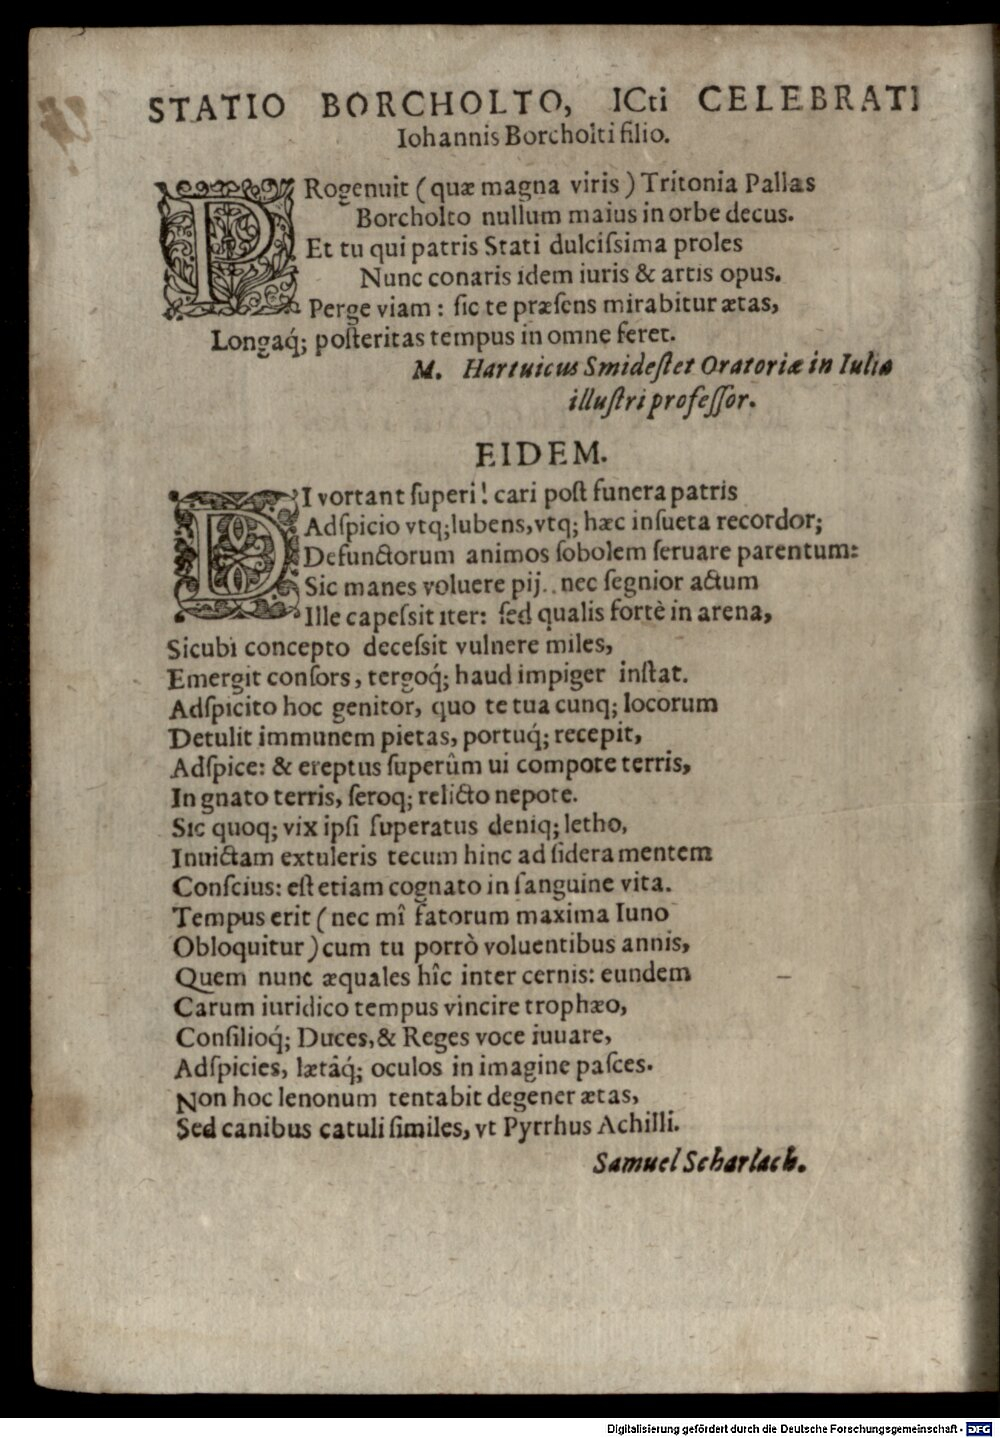 STATIO BORCHOLTO, ICti CELEBRATI
Iohannis Borcholti filio.
PRogenuit (quæ magna viris) Tritonia Pallas
Borcholto nullum maius in orbe decus.
Et tu qui patris Stati dulciſsima proles
Nunc conaris idem iuris & artis opus.
Perge viam: ſic te præſens mirabitur ætas,
Longaq́; poſteritas tempus in omne feret.
M. Hartuicus Smideſtet Oratoriæ in Iulia
illuſtri profeſſor.
EIDEM.
DI vortant ſuperi! cari poſt funera patris
Adſpicio vtq; lubens, vtq; hæc inſueta recordor;
Defunctorum animos ſobolem ſeruare parentum:
Sic manes voluere pij.. nec ſegnior actum
Ille capeſsit iter: ſed qualis fortè in arena,
Sicubi concepto deceſsit vulnere miles,
Emergit conſors, tergoq́; haud impiger inſtat.
Adſpicito hoc genitor, quo te tua cunq; locorum
Detulit immunem pietas, portuq́; recepit,
Adſpice: & ereptus ſuperûm ui compote terris,
In gnato terris, ſeroq; relicto nepote.
Sic quoq; vix ipſi ſuperatus deniq; letho,
Inuictam extuleris tecum hinc ad ſidera mentem
Conſcius: eſt etiam cognato in ſanguine vita.
Tempus erit (nec mî fatorum maxima Iuno
Obloquitur) cum tu porrò voluentibus annis,
Quem nunc æquales hîc inter cernis: eundem
Carum iuridico tempus vincire trophæo,
Conſilioq́; Duces, & Reges voce iuuare,
Adſpicies, lætâq́; oculos in imagine paſces.
Non hoc lenonum tentabit degener ætas,
Sed canibus catuli ſimiles, vt Pyrrhus Achilli.
Samuel Scharlach.
Digitalisierung gefördert durch die Deutsche Forschungsgemeinschaft - DFG